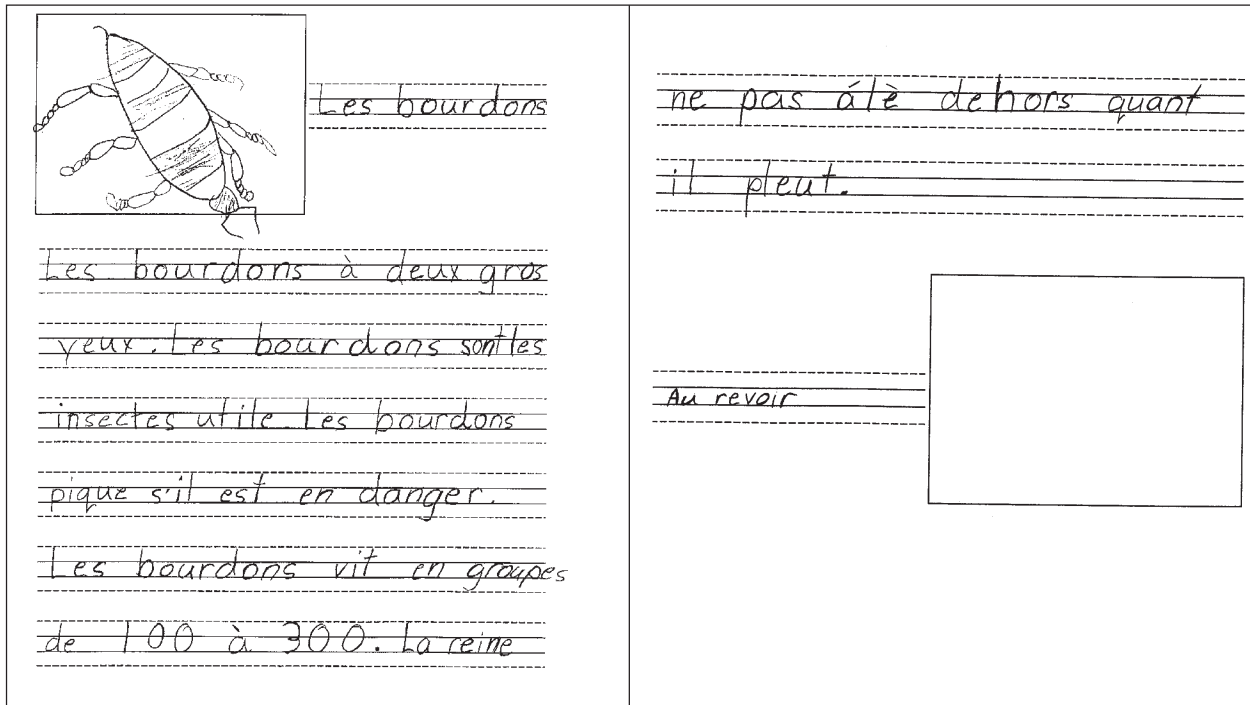 Les bourdons
Les bourdons à deux gros
yeux. Les bourdons sont les
insectes utile. Les bourdons
pique s'il est en danger.
Les bourdons vit en groupes
de 100 à 300. La reine
ne pas álè dehors quant
il pleut.
Au revoir